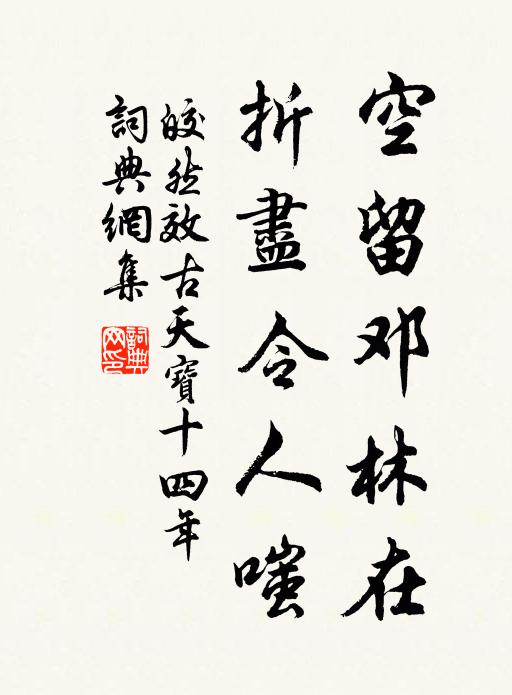 空留邓林在
折盡令人嗤
皎然效古天寶十四年
詞典網集
詞典網印